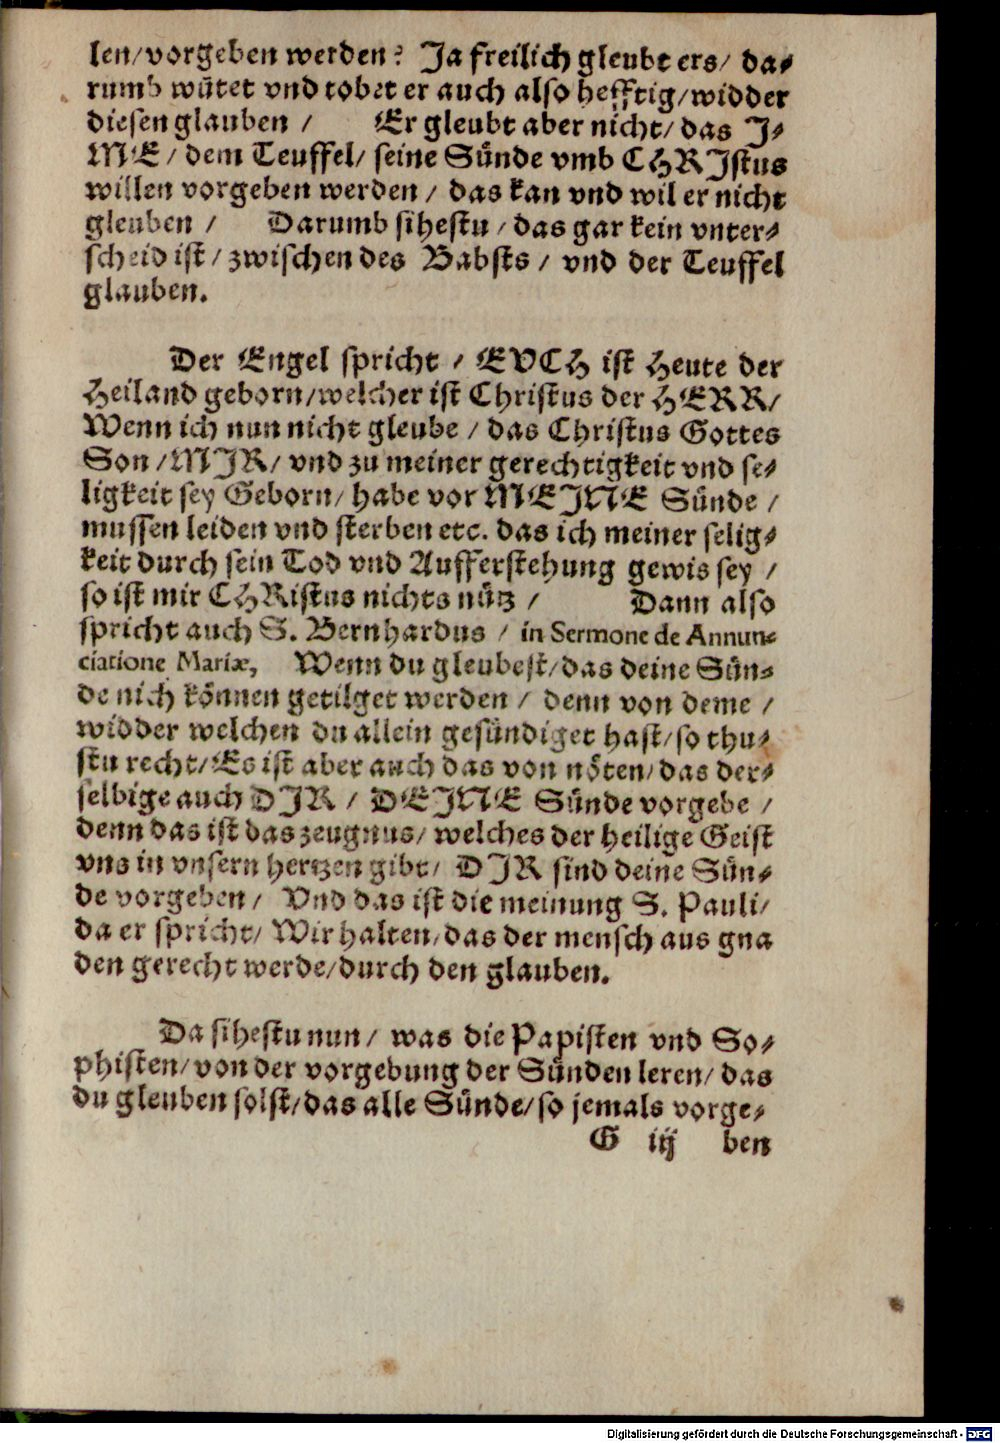 len/vorgeben werden? Ja freilich gleubt ers/ da-
rumb wütet vnd tobet er auch also hefftig/widder
diesen glauben / Er gleubt aber nicht/ das J-
ME/ dem Teuffel/ seine Sünde vmb CHRJstus
willen vorgeben werden / das kan vnd wil er nicht
gleuben / Darumb sihestu/das gar kein vnter-
scheid ist/ zwischen des Babsts / vnd der Teuffel
glauben.
Der Engel spricht / EVCH ist Heute der
Heiland geborn/welcher ist Christus der HERR/
Wenn ich nun nicht gleube / das Christus Gottes
Son /MJR/ vnd zu meiner gerechtigkeit vnd se-
ligkeit sey Geborn/ habe vor MEJNE Sünde /
mussen leiden vnd sterben etc. das ich meiner selig-
keit durch sein Tod vnd Aufferstehung gewis sey /
so ist mir CHRistus nichts nütz / Dann also
spricht auch S. Bernhardus / in Sermone de Annun-
ciatione Mariæ, Wenn du gleubest/das deine Sün-
de nich können getilget werden / denn von deme /
widder welchen du allein gesündiget hast/so thu-
stu recht/Es ist aber auch das von nöten/das der-
selbige auch DJR / DEJNE Sünde vorgebe /
denn das ist das zeugnus/ welches der heilige Geist
vns in vnsern hertzen gibt/ DJR sind deine Sün-
de vorgeben/ Vnd das ist die meinung S. Pauli/
da er spricht/ Wir halten/das der mensch aus gna
den gerecht werde/durch den glauben.
Da sihestu nun/ was die Papisten vnd So-
phisten/von der vorgebung der Sünden leren/ das
du gleuben solst/das alle Sünde/so jemals vorge-
G iij ben
Digitalisierung gefördert durch die Deutsche Forschungsgemeinschaft - DFG